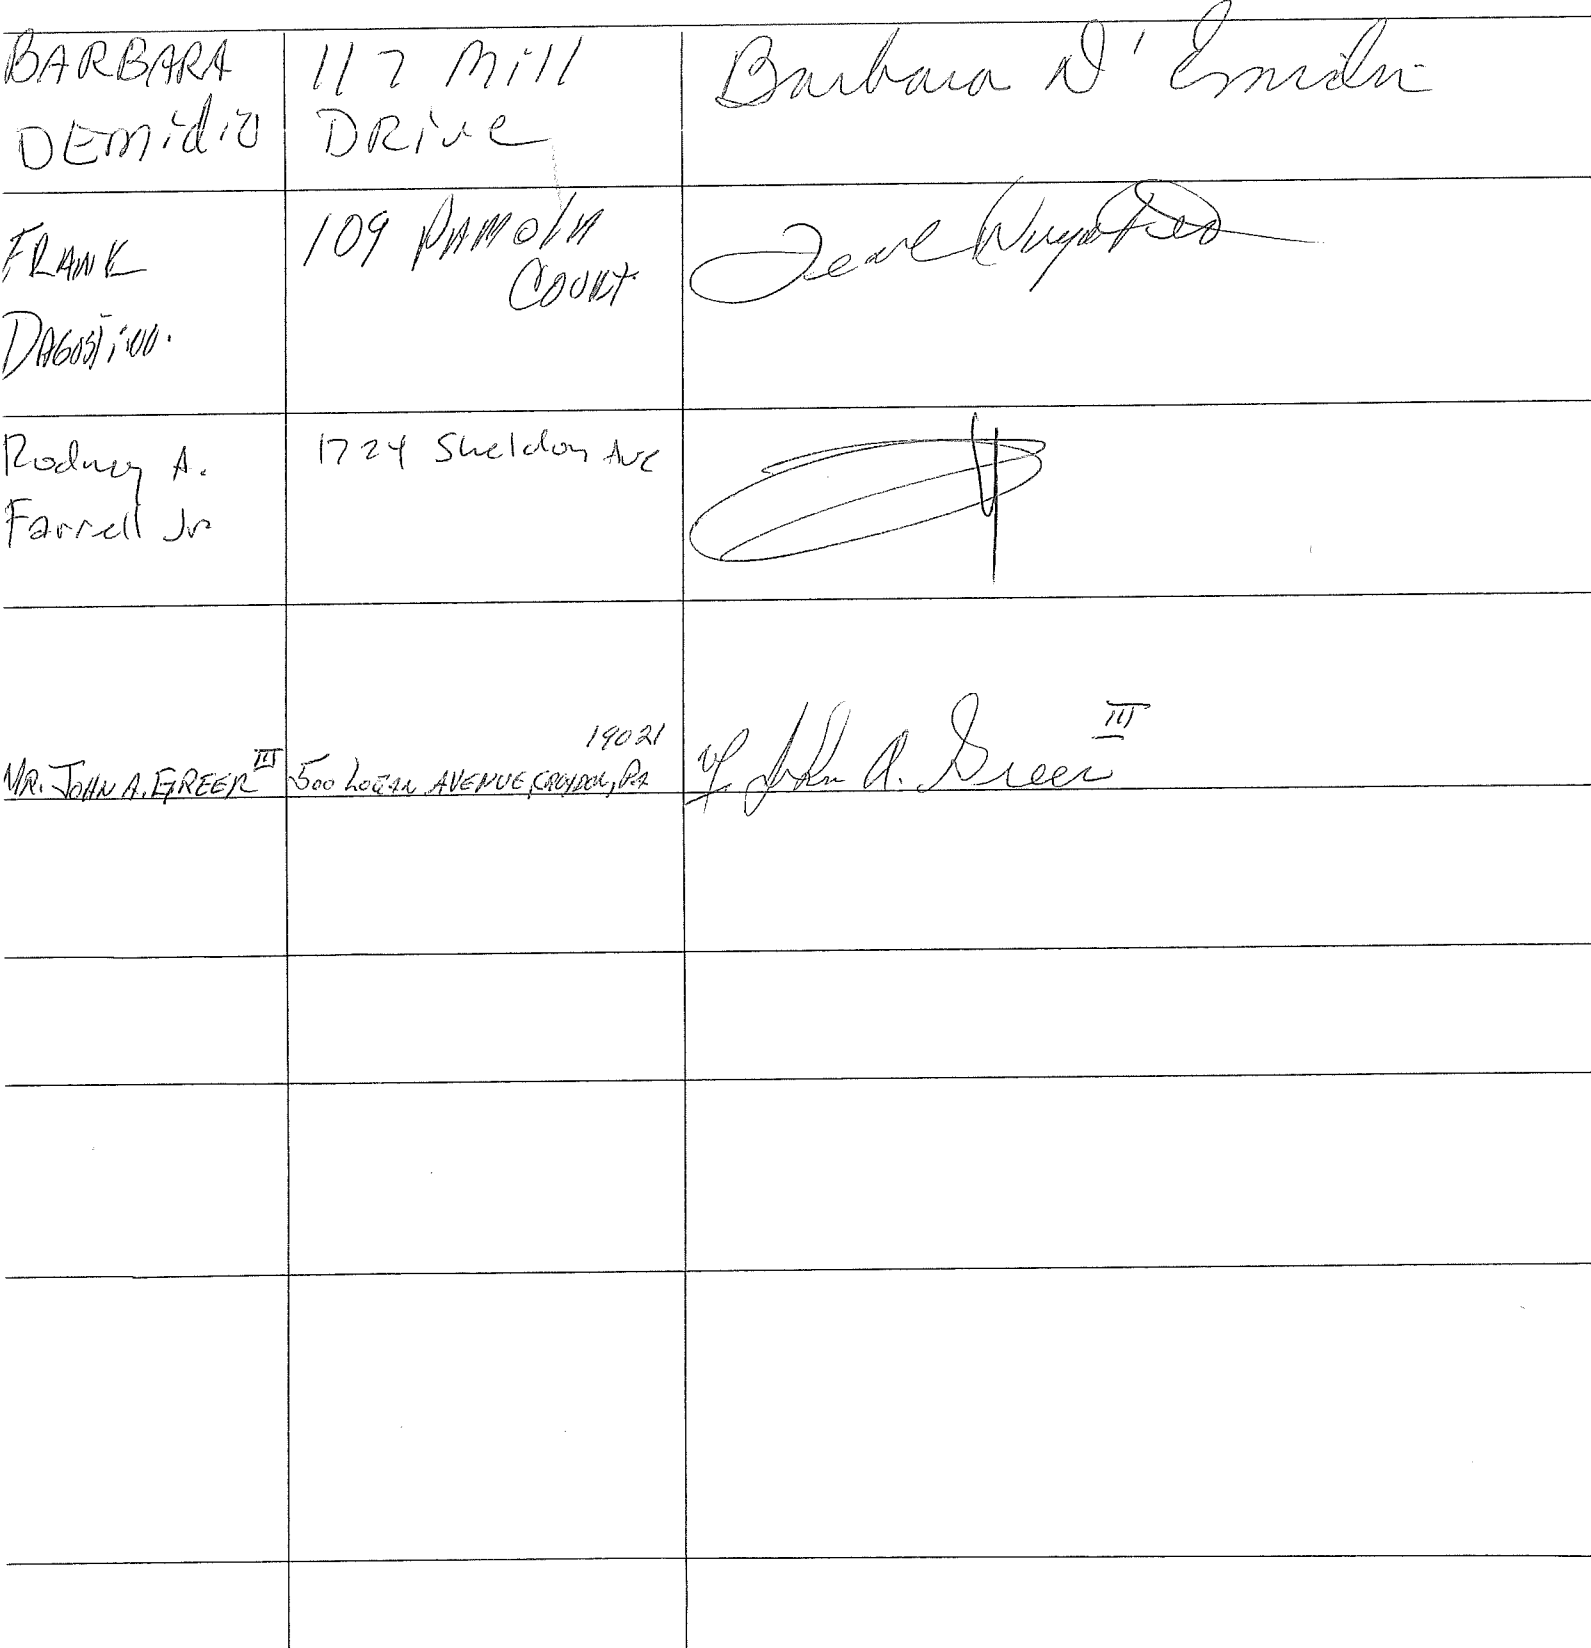 BARBARA
DEmidio
117 Mill
DRive
Barbara D'Emidio
FRANK
DAGOSTINO.
109
COURT
Rodney A.
Farrell Jr
1724 Sheldon Ave
MR. JOHN A. GREER III
19021
500 LOGAN AVENUE, CROYDON, PA
John A. Greer III